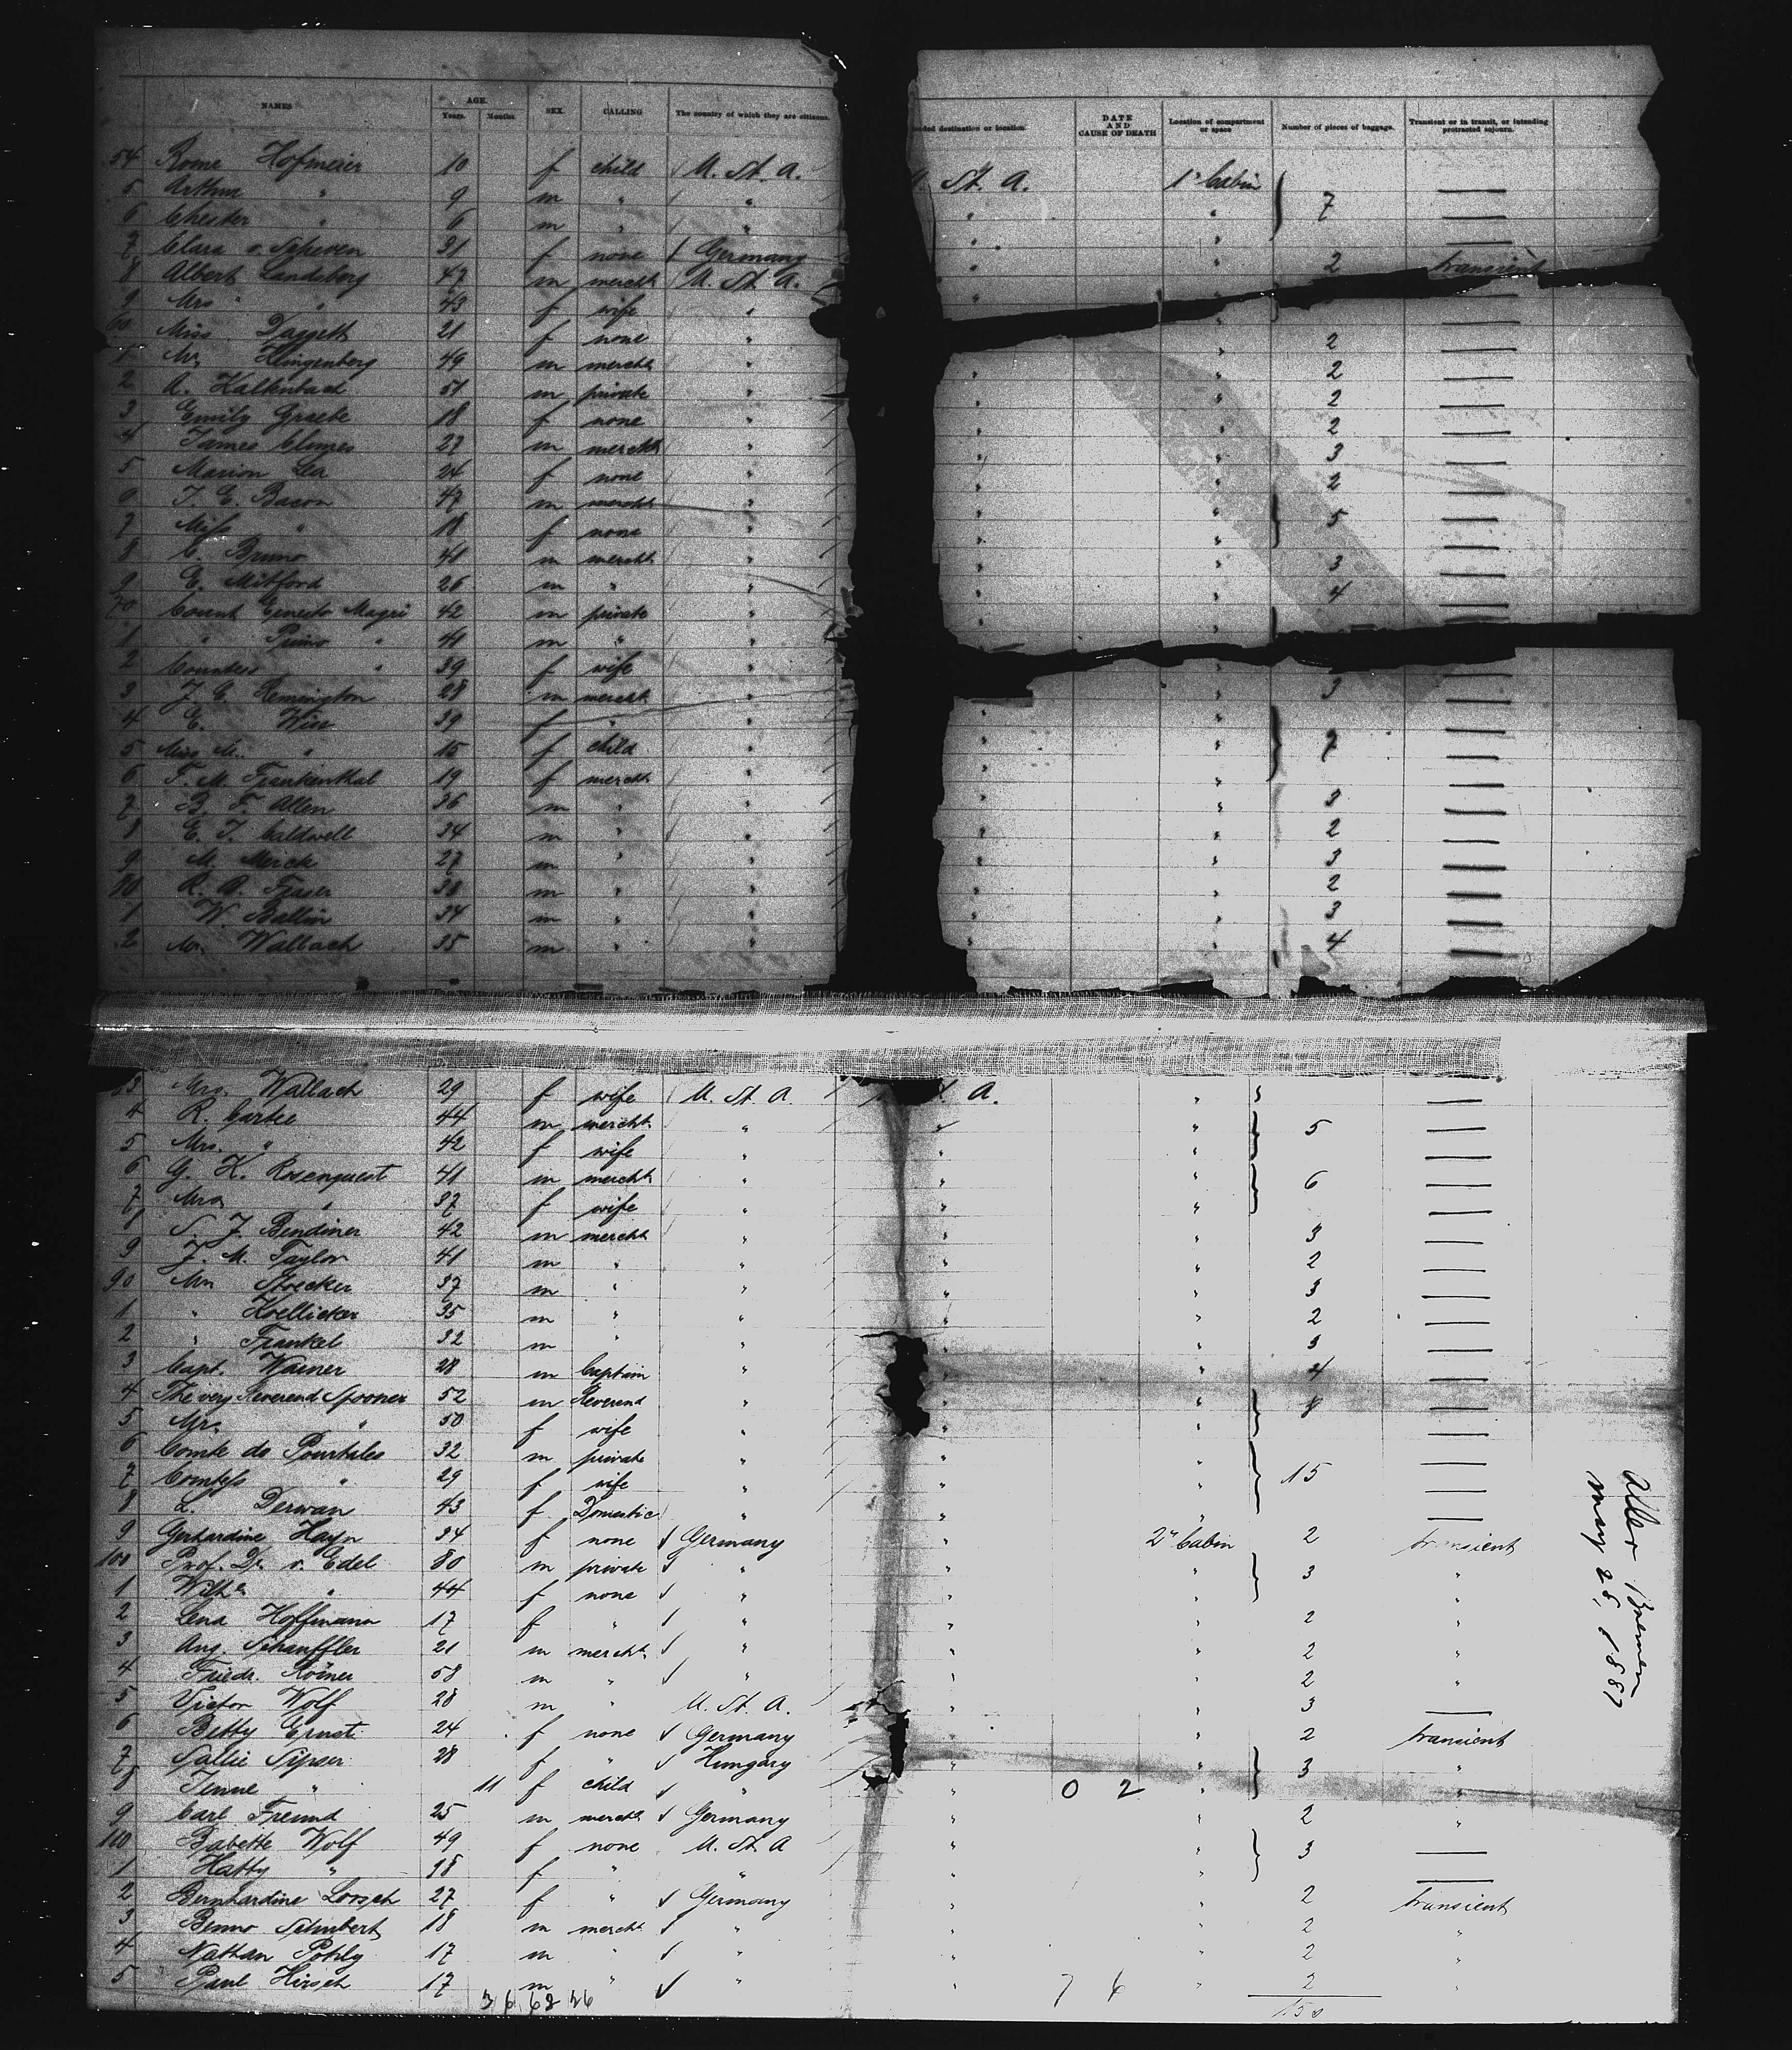 NAMES AGE. Years. Months. SEX. CALLING The country of which they are citizens. destination or location. DATE AND CAUSE OF DEATH Location of compartment or space Number of pieces of baggage. Transient or in transit, or intending protracted sojourn.
54 Hofmeier 10 f child U. St. A. St. A. 1" Cabin
5 Arthur " 9 m " " " " 7
6 Chester " 6 m " " " "
7 Clara v. Scheven 31 f none Germany " " 2 transient
8 Albert Landsberg 47 m mercht U. St. A. "
9 Mrs " 43 f wife "
60 Miss Daggett 21 f none " " 2
1 Mr. Klingenberg 49 m mercht " " " 2
2 A. Kalkenbach 51 m private " " " 2
3 Emily Graebe 18 f none " " " 2
4 James Climes 27 m mercht " " " 3
5 Marion Lea 24 f none " " " 2
6 T. E. Bacon 47 m mercht " " "
7 Miss " 18 f none " " " 5
8 C. Bruno 41 m mercht " " " 3
9 E. Mitford 26 m " " " " 4
70 Count Ernesto Magri 42 m private " " "
1 " Primo " 41 m " "
2 Countess " 39 f wife "
3 J. C. Remington 28 m mercht " 3
4 E. Wise 39 f " " " "
5 Miss M. " 15 f child " " " 7
6 F. M. Frankenthal 19 f mercht " " "
7 B. F. Allen 36 m " " " " 3
8 E. T. Caldwell 34 m " " " " 2
9 M. Merck 27 m " " " " 3
80 R. B. Fraser 38 m " " " " 2
1 W. Ballin 34 m " " " " 3
2 Mr. Wallach 35 m " " " " 4
83 Mrs. Wallach 29 f wife U. St. A. A. "
4 R. Cartee 44 m mercht " " " 5
5 Mrs. " 42 f wife " " "
6 G. K. Rosenquest 41 m mercht " " " 6
7 Mrs " 37 f wife " " "
8 S. J. Bendiner 42 m mercht " " " 3
9 J. M. Taylor 41 m " " " " 2
90 Mr. Stoecker 37 m " " " " 3
1 " Koellicker 35 m " " " " 2
2 " Frankel 32 m " " " " 3
3 Capt. Warner 28 m Captain " " " 4
4 The very Reverend Spooner 52 m Reverend " " " 8
5 Mrs. " 50 f wife " " "
6 Comte de Pourtales 32 m private " " "
7 Comtess " 29 f wife " " " 15
8 L. Derwan 43 f Domestic " " "
9 Gerhardine Hayn 34 f none Germany " 2" Cabin 2 transient
100 Prof. Dr. v. Edel 80 m private " " " 3 "
1 " 44 f none " " " "
2 Lena Hoffmann 17 f " " " " 2 "
3 Aug. Schauffler 21 m mercht " " " 2 "
4 Friedr. Römer 58 m " " " " 2 "
5 Victor Wolf 28 m " U. St. A. " " 3
6 Betty Ernst 24 f none Germany " " 2 transient
7 Sallie Sipser 28 f " Hungary " " 3 "
8 " 11 f child " " 0 2 " "
9 Carl Freund 25 m mercht Germany " " 2 "
110 Babette Wolf 49 f none U. St. A " " 3
1 Hatty " 18 f " " " "
2 Bernhardine Loesch 27 f " Germany " " 2 transient
3 Benno Schubert 18 m mercht " " " 2 "
4 Nathan Pohly 17 m " " " " 2 "
5 Paul Hirsch 17 m " " " 7 4 " 2 "
150
Aller Bremen
May 25, 1887